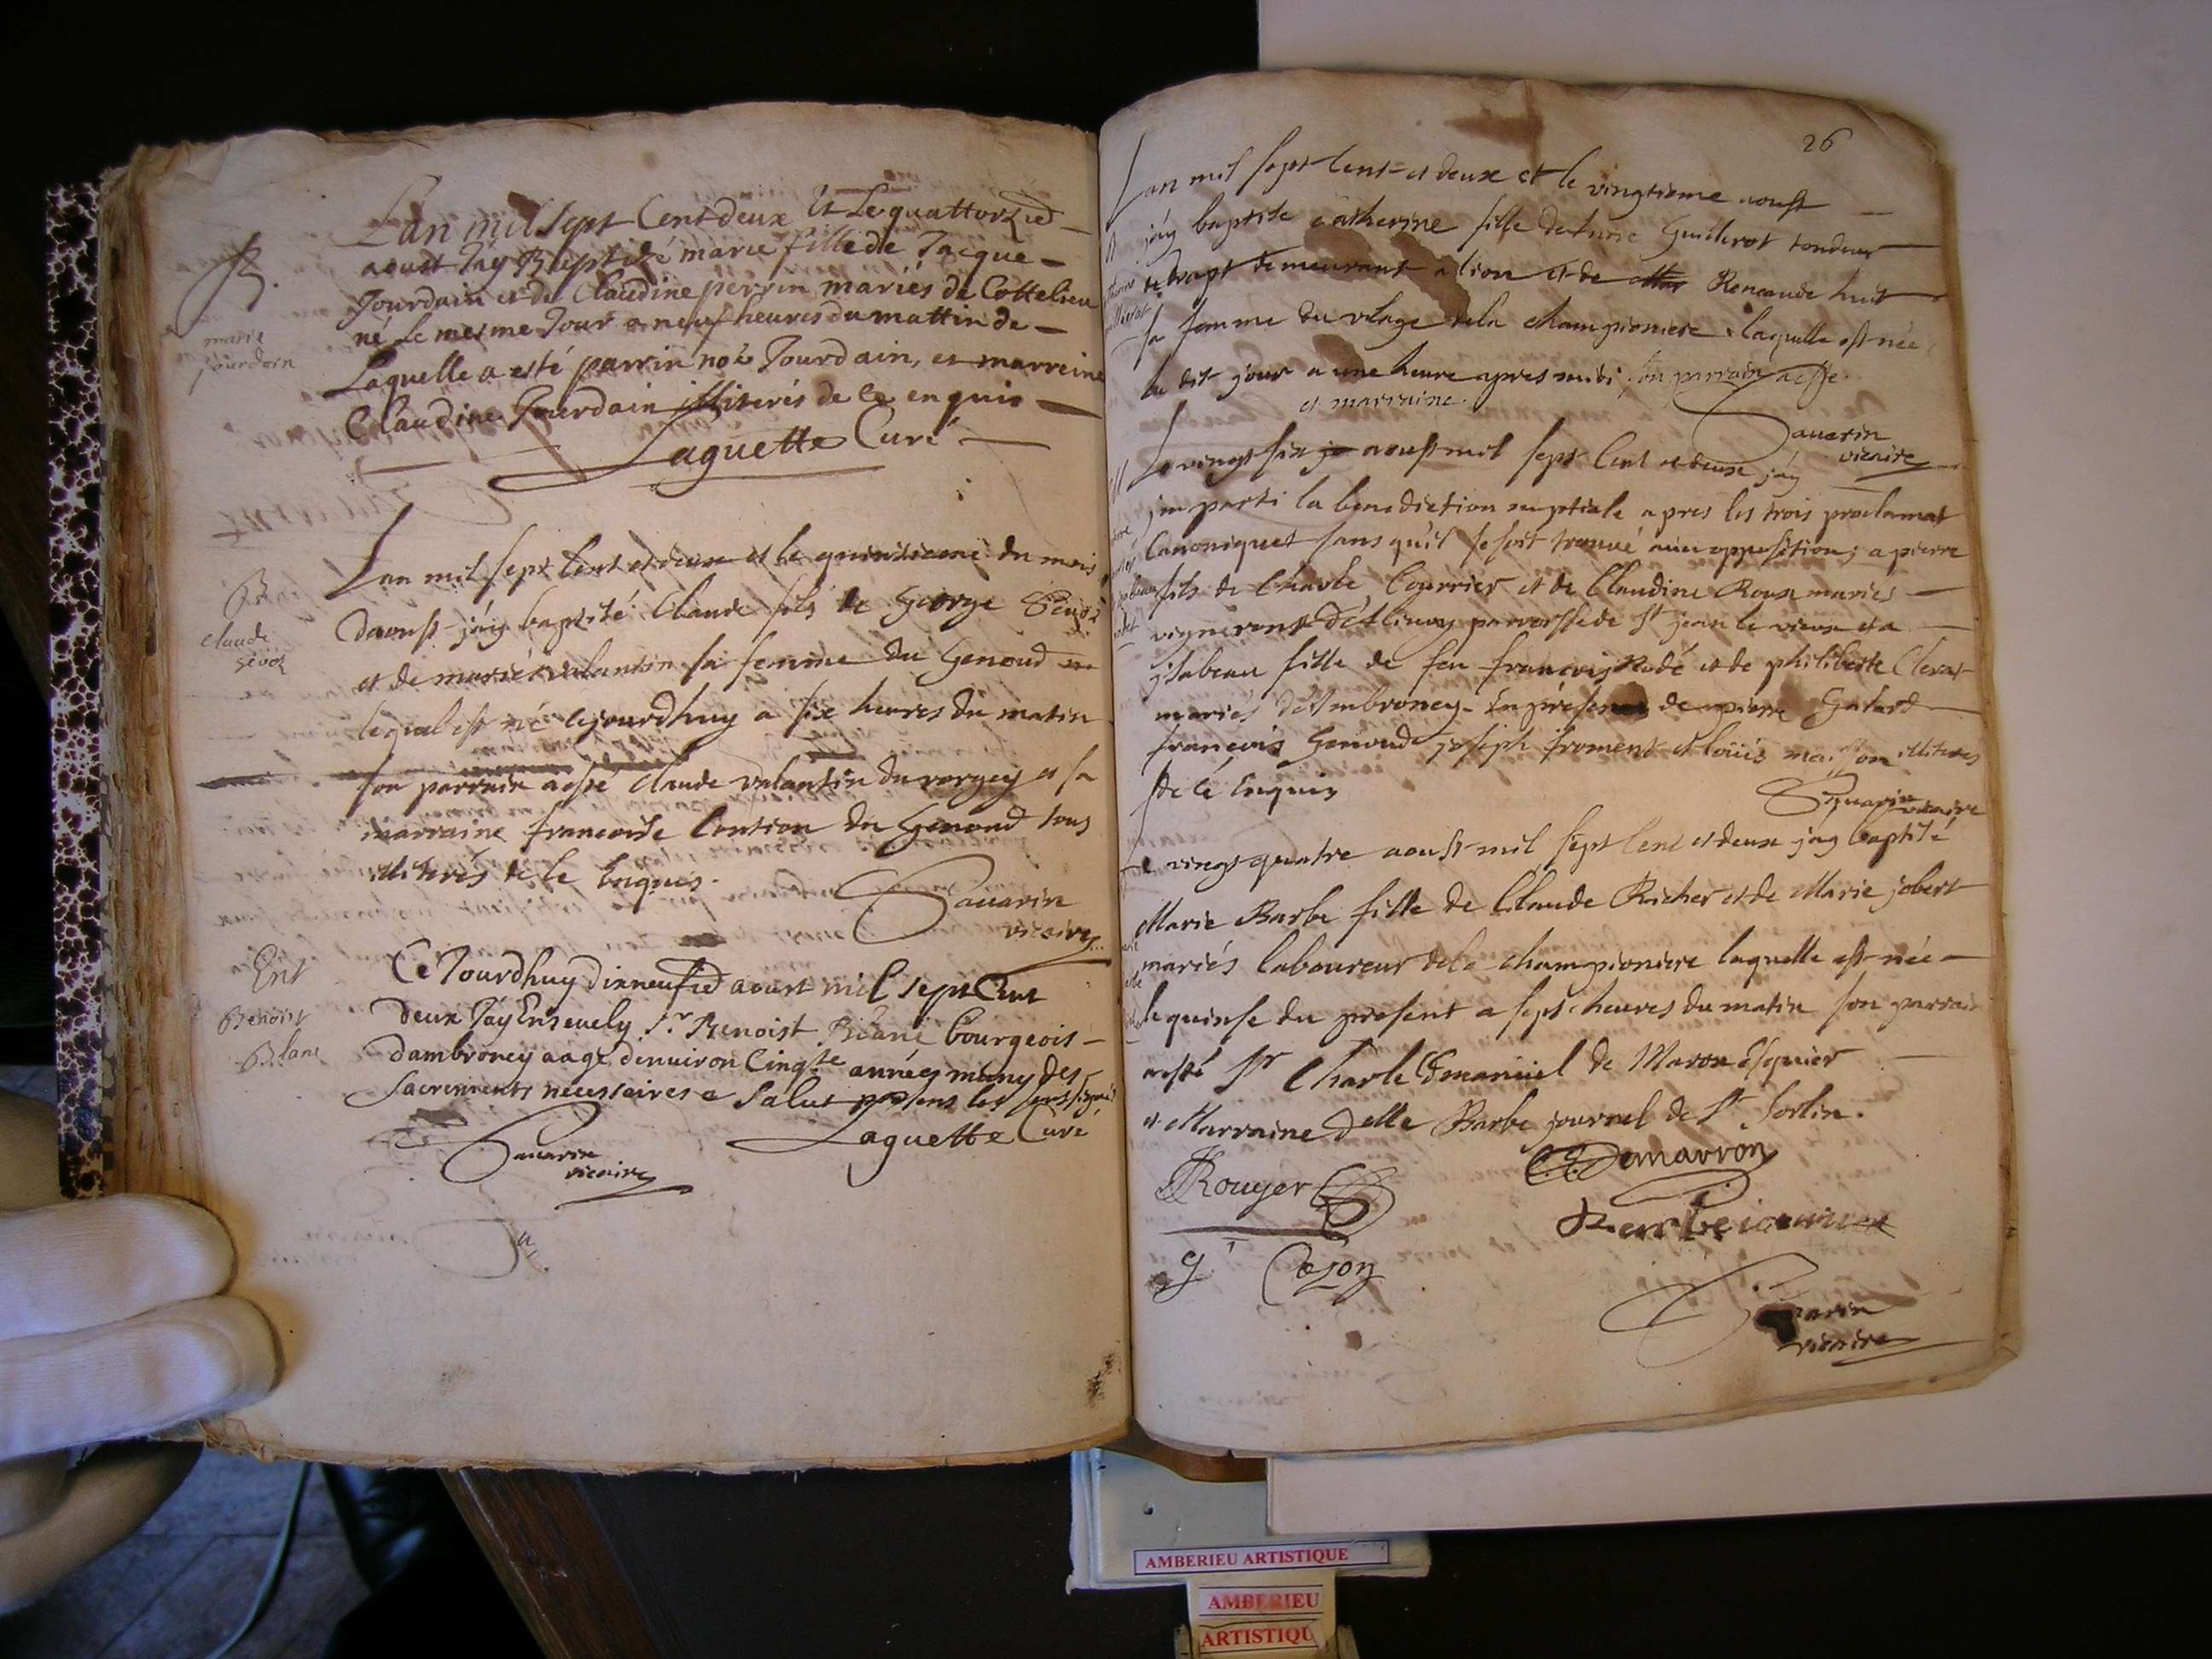 B.
marie
jourdain
Lan mil sept Cent deux Et Le quattorzie
aoust Jay Baptizé marie fille de Jacque
Jourdain et de Claudine perrin mariés de Cottelieu
né le mesme Jour a neuf heures du mattin de
Laquelle a esté parrin noé Jourdain, et marreine
Claudine Jourdain illiterés de ce enquis
Laguette Curé
B
claude
Lan mil sept Cent et deux et le quinsieme du mois
daoust jáy baptisé Claude fils de George
et de marie valantin sa femme du Genoud
lequel est né cejourdhuy a six heures du matin
son parrain a esté Claude valantin du vorgey et sa
marraine francoise Cention du Genoud tous
illiterés de ce Enquis.
Sauarin
vicaire
Ent
Benoist
Blanc
Ce Jourdhuy dixneufie aoust mil sept Cent
deux Jáy Enseuely Sr Benoist Blanc bourgeois
dambroney aagé denuiron Cinqte années muny des
Sacrements necessaires a Salut presens les soussignés
Sauarin
vicaire
Laguette Curé
26
Lan mil sept Cent et deux et le vingtieme aoust
jáy baptisé Catherine fille Guillerot tondeur
de drapt demeurant a lion et de Renaude huit
sa femme du vilage de la championiere laquelle est née
le dit jour a une heure apres midi son parrain a esté
et marraine.
Sauarin
vicaire
Le vingt six aoust mil sept Cent et deux jáy
jmparti la benediction nuptiale apres les trois proclamat
Canoniques sans qu'il se soit trouvé aucu opposition; a pierre
fils de Charle Courrier et de Claudine Roux mariés
vignerons parroisse de St jean le vieux et a
jsabeau fille de feu francois Rudé et de philiberte Cleras
mariés d'Ambroney. En présence de pierre Gutard
francois Genoud joseph froment et loüis maisson illiteres
de cé Enquis
Sauarin
vicaire
Le vingt quatre aoust mil sept Cent et deux jáy baptisé
Marie Barbe fille de Claude Richer et de Marie jobert
mariés laboureur de la championiere laquelle est née
le quinse du present a sept heures du matin son parrain
a esté Sr Charle Emanüel de Maron Esquier
et Marraine Delle Barbe journel de St Sorlin.
Rouyer
C. E. Demarron
Barbe iournel
g Cozon
Sauarin
vicaire
AMBERIEU ARTISTIQUE
AMBERIEU
ARTISTIQU